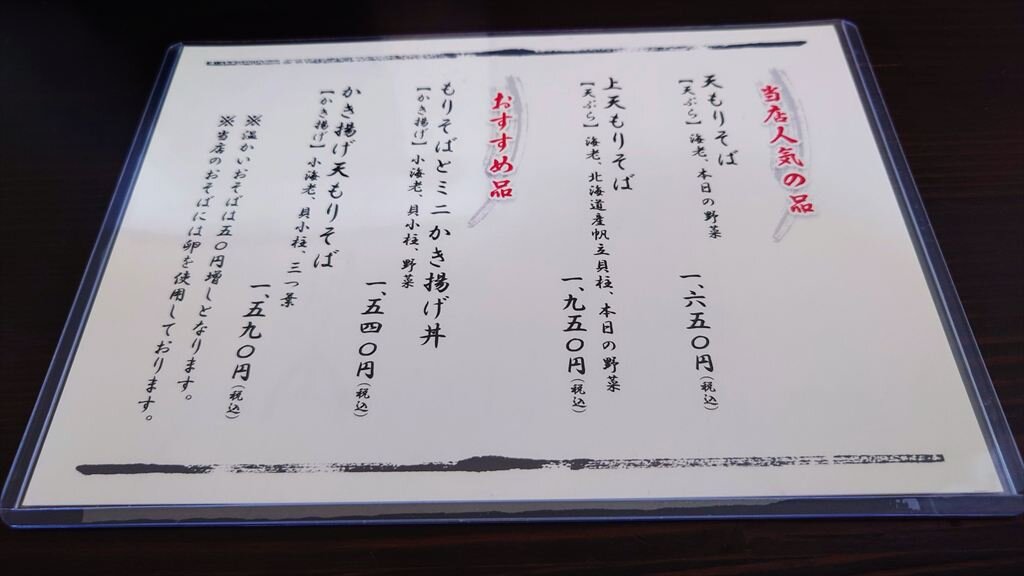 当店人気の品
天もりそば
【天ぷら】海老、本日の野菜
一、六五〇円(税込)
上天もりそば
【天ぷら】海老、北海道産帆立貝柱、本日の野菜
一、九五〇円(税込)
おすすめ品
もりそばとミニかき揚げ丼
【かき揚げ】小海老、貝小柱、野菜
一、五四〇円(税込)
かき揚げ天もりそば
【かき揚げ】小海老、貝小柱、三つ葉
一、五九〇円(税込)
※温かいおそばは五〇円増しとなります。
※当店のおそばには卵を使用しております。